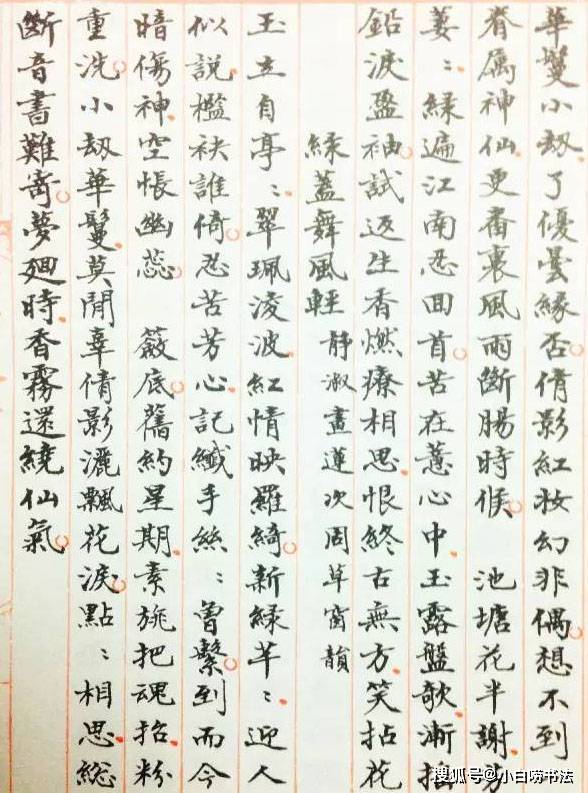 華鬘小刼了優曇緣否倩影紅妝幻非偶想不到
眷屬神仙更番裏風雨斷腸時候 池塘花半謝芳
萋:綠遍江南忍回首苦在薏心中玉露盤欹漸搵
鉛淚盈袖試返生香燃療相思恨終古無方笑拈花
綠蓋舞風輕 静淑畫蓮次周草窗韻
玉立自亭:翠珮淩波紅情映羅綺新綠芊:迎人
似說檻袂誰倚忍苦芳心記纖手絲:曾繫到而今
暗傷神空悵幽蕊 底舊約星期素旐把魂招粉
重洗小刼華鬘莫閒辜倩影灑飄花淚點:相思總
斷音書難寄夢廻時香霧還繞仙氣
搜狐号@小白唠书法